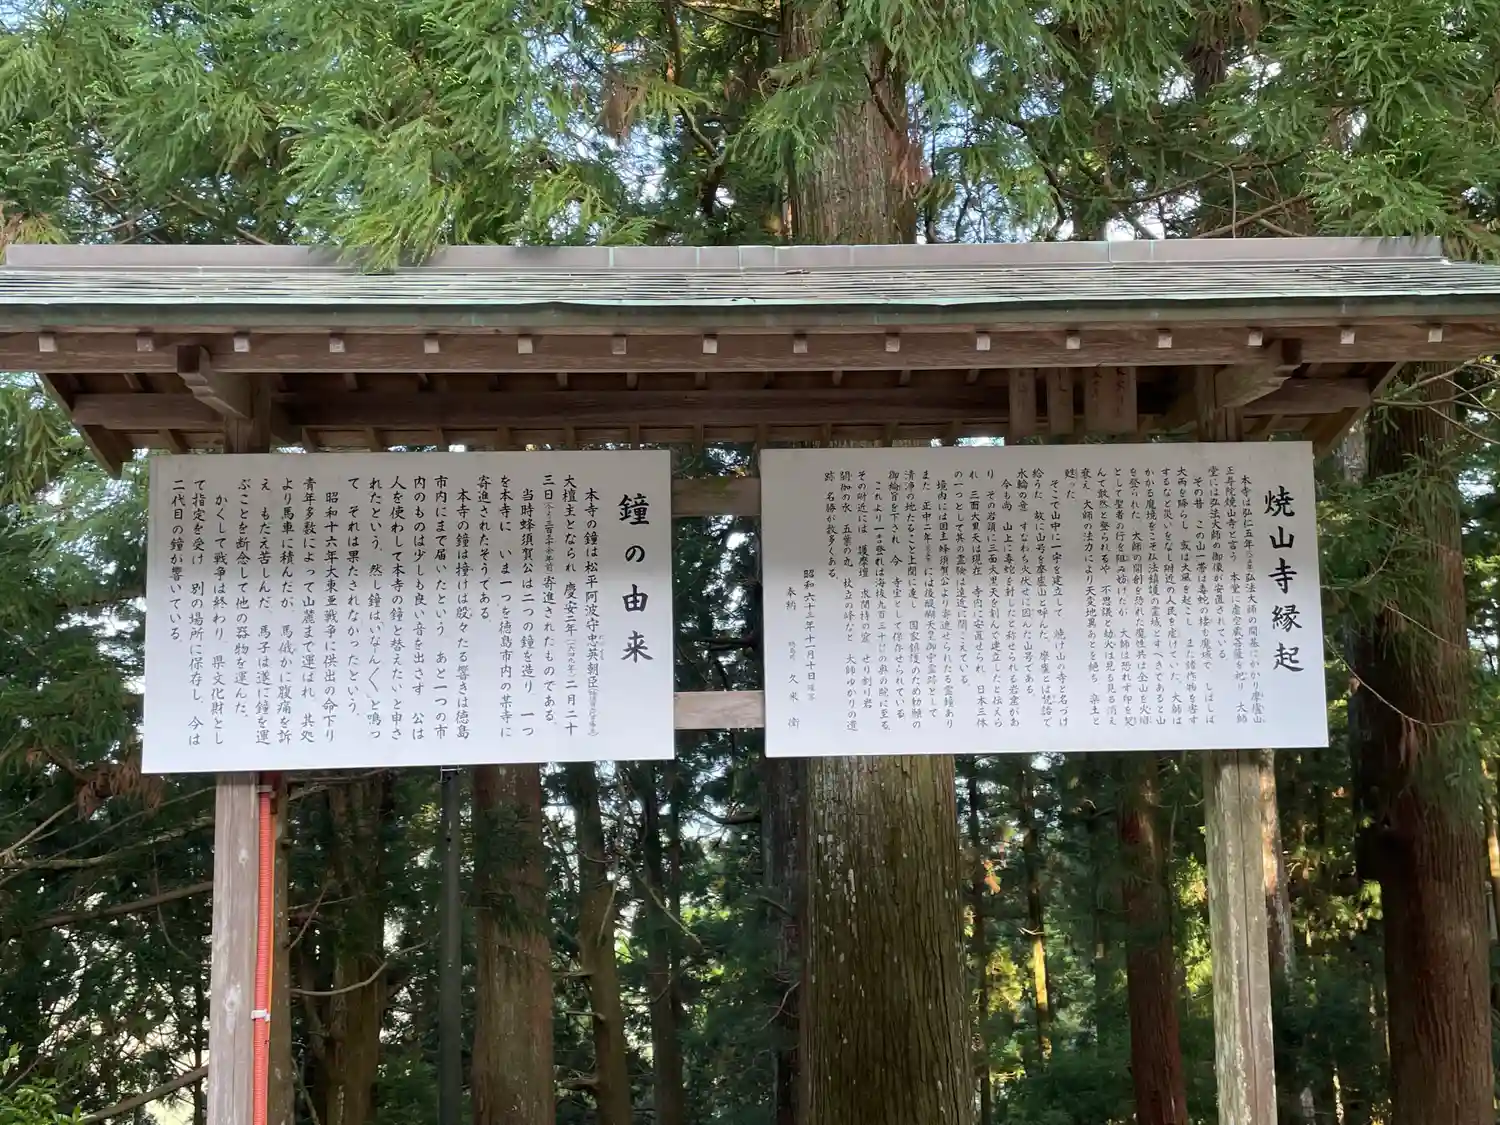 焼山寺縁起
本寺は弘仁五年 弘法大師の開基にかかり摩盧山
正寿院焼山寺と言う 本堂に虚空蔵菩薩を祀り 大師
堂には弘法大師の御像が安置されている。
その昔 この山一帯は毒蛇の棲む魔域で しばしば
大雨を降らし 或は大風を起こし また諸作物を害す
するなど災いをなし附近の大民を虐げていた。大師は
かかる魔境をこそ仏法鎮護の霊域とすべきであると山
を登られた。大師の開創を恐れた魔性共は全山を火焔
として聖者の行を阻み妨げたが 大師は恐れず印を契
んで敢然と登られるや 不思議と劫火は見る見る消え
衰え 大師の法力により天変地異あとを絶ち 楽土と
甦った
そこで山中に一宇を建立して 焼け山の寺と名づけ
給うた。故に山号を摩盧山と呼んだ。摩盧とは梵語で
水輪の意 すなわち火伏せに因んだ山号である。
今も尚 山上に毒蛇を封じたと称せられる岩窟があ
り その岩頭に三面大黒天を刻んで建立したと伝えら
れ 三面大黒天は現在 寺内に安置せられ 日本三体
の一つとして其の霊験は遠近に聞こえている。
境内には国主蜂須賀公より寄進せられた霊鐘あり
また正中二年 には後醍醐天皇御守霊跡として
清浄の地たること上聞に達し 国家鎮護のため勅願の
御綸旨を下され 今 寺宝として保存せられている。
これより一粁登れば海抜九百三十米の奥の院に至る
その附近には 護摩壇 求聞持の窟 せり割り岩
閼伽の水 五葉の松 杖立の峠など 大師ゆかりの遺
跡 名勝が数多くある。
昭和六十三年十一月十日
奉納 久米 衛
鐘の由来
本寺の鐘は松平阿波守忠英朝臣
大檀主となられ 慶安二年(一六四九年)二月二十
三日 今より三百三十余年前 寄進されたものである。
当時蜂須賀公は二つの鐘を造り 一つ
を本寺に いま一つを徳島市内の某寺に
寄進されたそうである
本寺の鐘は撞けば殷々たる響きは徳島
市内にまで届いたという。あと一つの市
内のものは少しも良い音を出さず 公は
人を使わして本寺の鐘と替えたいと申さ
れたという。然し鐘はいなん〱と鳴っ
て それは果たされなかったという。
昭和十六年大東亜戦争に供出の命下り
青年多数によって山麓まで運ばれ 其処
より馬車に積んだが 馬俄かに腹痛を訴
え もだえ苦しんだ。馬子は遂に鐘を運
ぶことを断念して他の器物を運んだ。
かくして戦争は終わり 県文化財とし
て指定を受け 別の場所に保存し、今は
二代目の鐘が響いている。